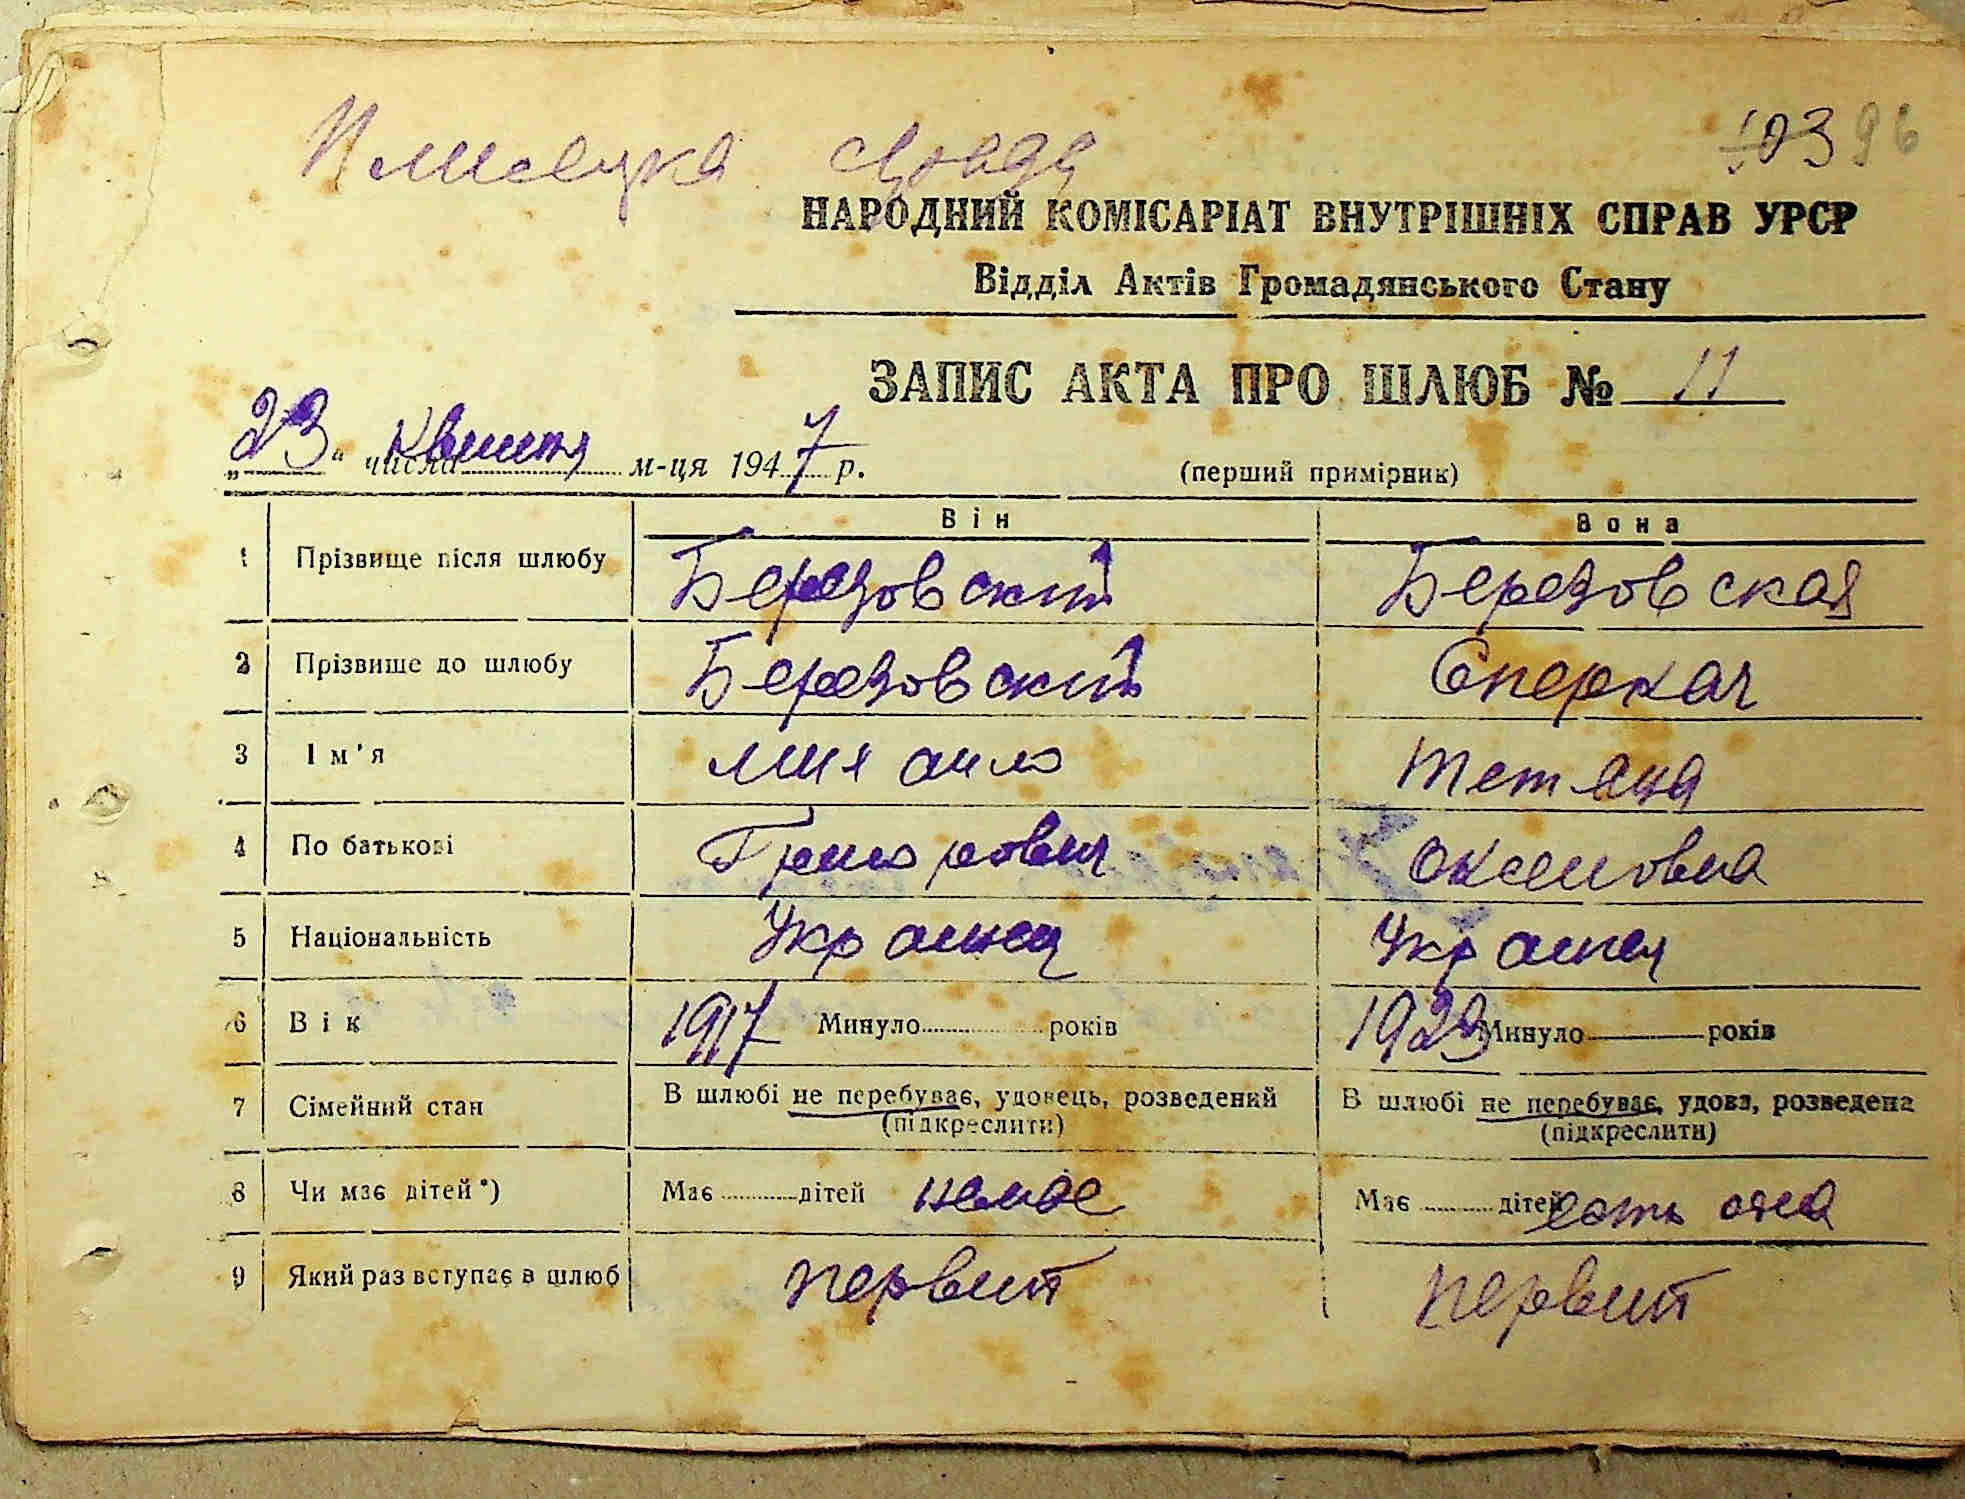 Плисецка сілрада
103 96
НАРОДНИЙ КОМІСАРІАТ ВНУТРІШНІХ СПРАВ УРСР
Відділ Актів Громадянського Стану
ЗАПИС АКТА ПРО ШЛЮБ № 11
„23“ числа квитня м-ця 1947 р.
(перший примірник)
Він Вона
1 Прізвище після шлюбу Березовский Березовская
2 Прізвище до шлюбу Березовский Оперкач
3 Ім'я Михайло Тетяна
4 По батькові Григорович Оксеновна
5 Національність Украинец
6 Вік 1917 Минуло років 1923 Минуло років
7 Сімейний стан В шлюбі не перебуває, удовець, розведений В шлюбі не перебуває, удова, розведена
(підкреслити) (підкреслити)
8 Чи має дітей*) Має дітей немає Має дітей есть одна
9 Який раз вступає в шлюб первий первий